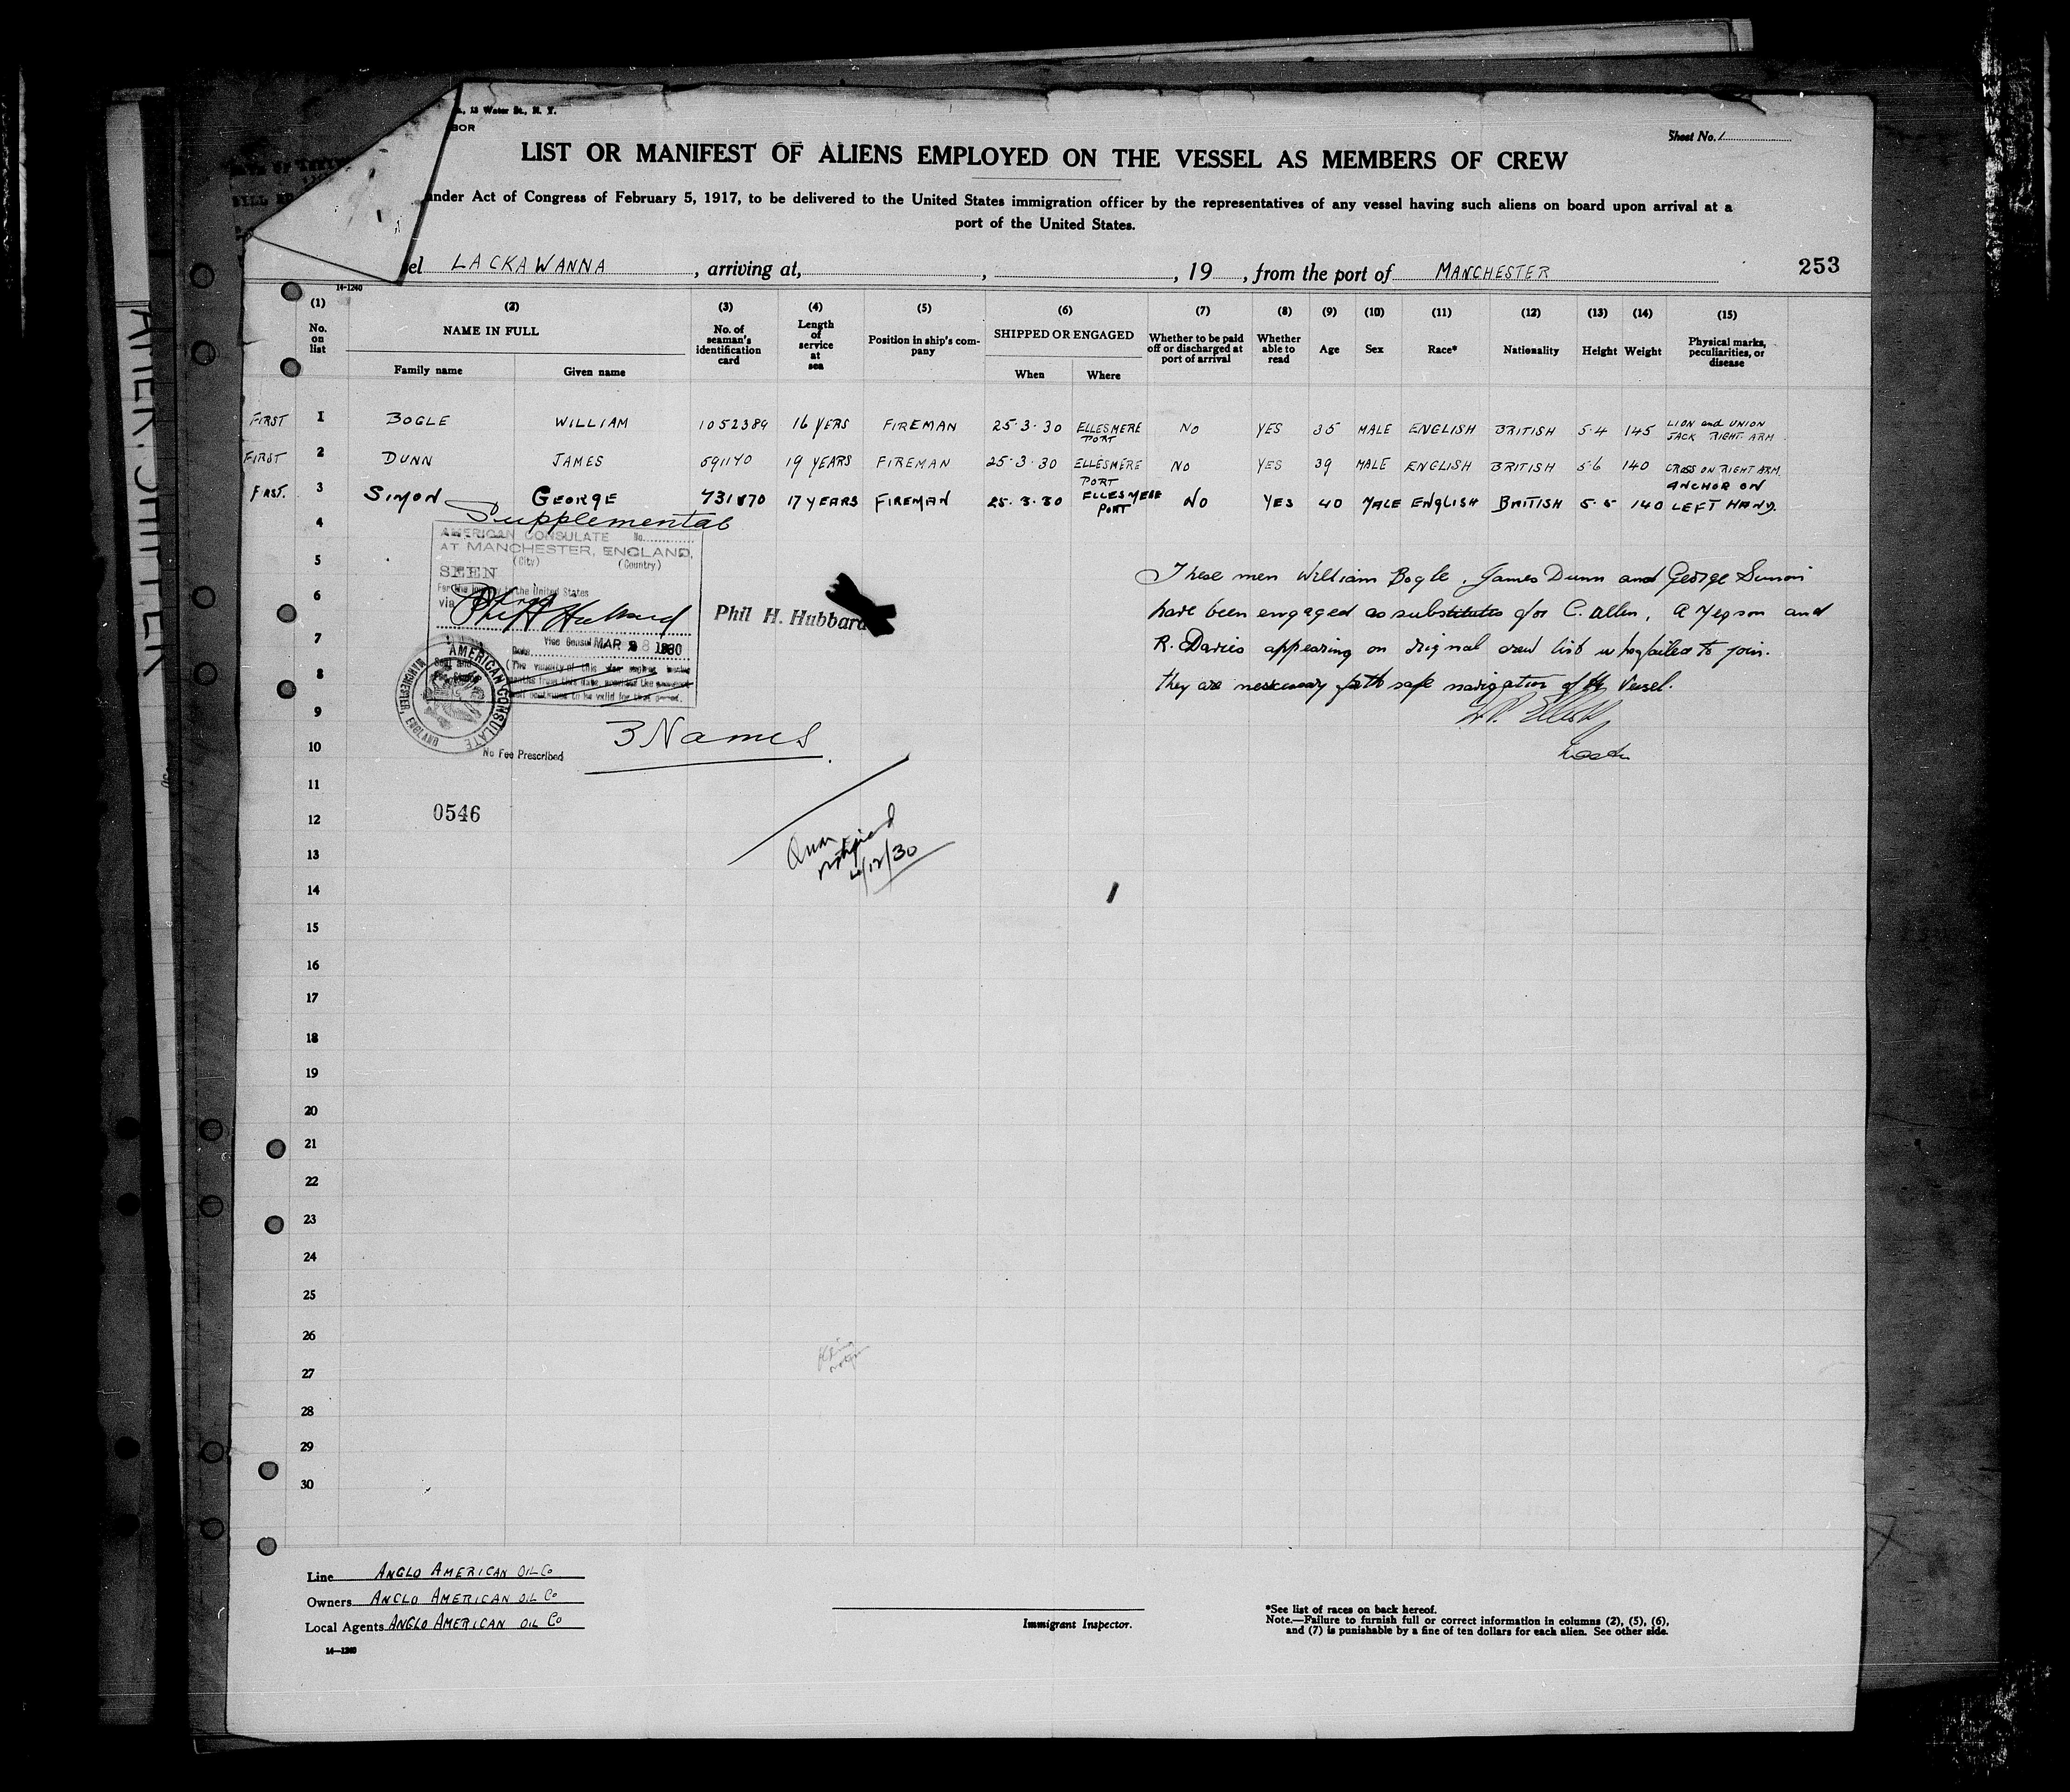 , 13 Water St., N. Y.
BOR
Sheet No. 1
LIST OR MANIFEST OF ALIENS EMPLOYED ON THE VESSEL AS MEMBERS OF CREW
under Act of Congress of February 5, 1917, to be delivered to the United States immigration officer by the representatives of any vessel having such aliens on board upon arrival at a
port of the United States.
el LACKAWANNA, arriving at, , , 19 , from the port of MANCHESTER
253
14-1240
(1) (2) (3) (4) (5) (6) (7) (8) (9) (10) (11) (12) (13) (14) (15)
No. on list NAME IN FULL Family name Given name No. of seaman's identification card Length of service at sea Position in ship's company SHIPPED OR ENGAGED When Where Whether to be paid off or discharged at port of arrival Whether able to read Age Sex Race* Nationality Height Weight Physical marks, peculiarities, or disease
FIRST 1 BOGLE WILLIAM 1052389 16 YERS FIREMAN 25·3·30 ELLESMERE PORT NO YES 35 MALE ENGLISH BRITISH 5·4 145 LION and UNION JACK RIGHT ARM
FIRST 2 DUNN JAMES 591170 19 YEARS FIREMAN 25·3·30 ELLESMERE PORT NO YES 39 MALE ENGLISH BRITISH 5·6 140 CROSS ON RIGHT ARM
FIRST. 3 SIMON GEORGE 731870 17 YEARS FIREMAN 25·3·30 ELLESMERE PORT NO YES 40 MALE ENGLISH BRITISH 5·5 140 ANCHOR ON LEFT HAND.
4
Supplemental
AMERICAN CONSULATE No.
AT MANCHESTER, ENGLAND,
(City) (Country)
SEEN
For the journey to the United States
via
Phil H Hubbard
Phil H. Hubbard
Vice Consul
Date MAR 28 1930
AMERICAN CONSULATE
MANCHESTER, ENGLAND
No Fee Prescribed
3 Names.
These men William Bogle, James Dunn and George Simon
have been engaged as substitutes for C. Allen, A Jepson and
R. Davies appearing on original crew list who failed to join.
they are nescessary for the safe navigation of the Vessel.
5
6
7
8
9
10
11
12
0546
13
14
15
16
17
18
19
20
21
22
23
24
25
26
27
28
29
30
Line ANGLO AMERICAN OIL Co
Owners ANGLO AMERICAN OIL Co
Local Agents ANGLO AMERICAN OIL Co
14—1240
Immigrant Inspector.
*See list of races on back hereof.
Note.—Failure to furnish full or correct information in columns (2), (5), (6),
and (7) is punishable by a fine of ten dollars for each alien. See other side.